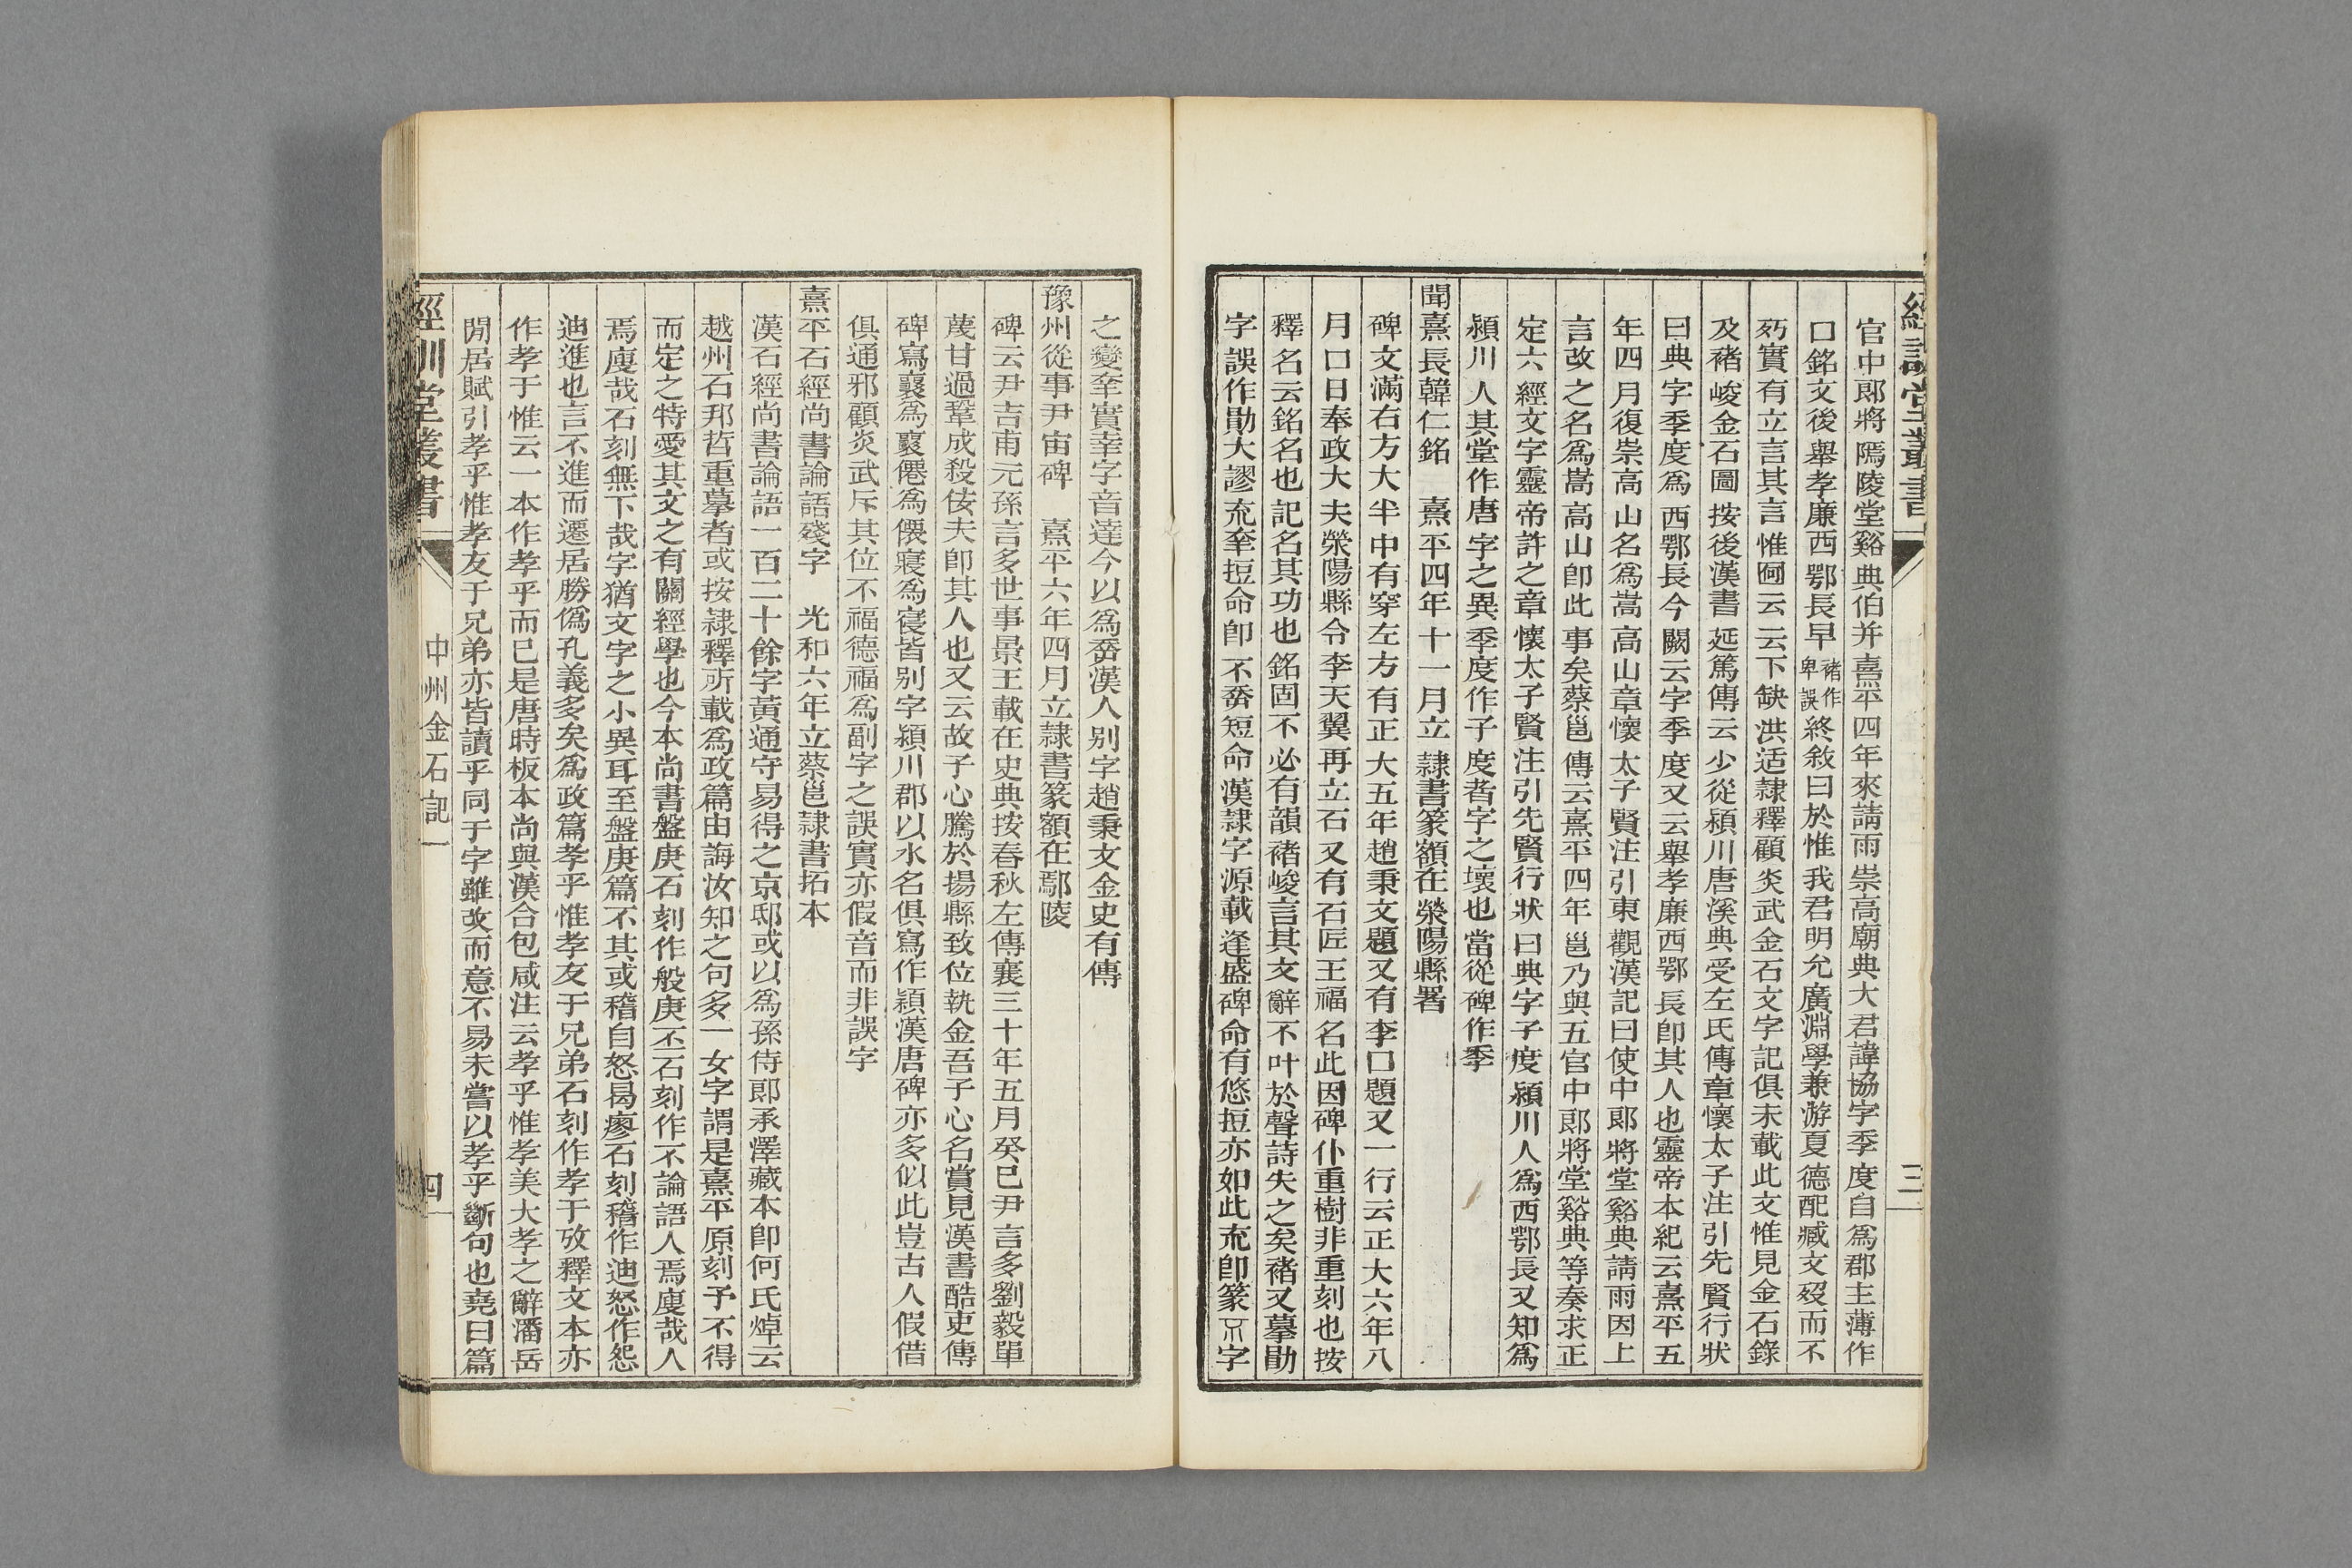 經訓堂叢書
三
官中郎將隖陵堂谿典伯并熹平四年來請雨崇高廟典大君諱協字季度自爲郡主薄作
口銘文後舉孝廉西鄂長早褚作卑誤終敘曰於惟我君明允廣淵學兼游夏德配臧文歿而不
朽實有立言其言惟云云下缺洪适隷釋顧炎武金石文字記俱未載此文惟見金石錄
及褚峻金石圖按後漢書延篤傳云少從潁川唐溪典受左氏傳章懷太子注引先賢行狀
曰典字季度爲西鄂長今闕云字季度又云舉孝廉西鄂長卽其人也靈帝本紀云熹平五
年四月復崇高山名爲嵩高山章懷太子賢注引東觀漢記曰使中郎將堂谿典請雨因上
言改之名爲嵩高山卽此事矣蔡邕傳云熹平四年邕乃與五官中郎將堂谿典等奏求正
定六經文字靈帝許之章懷太子賢注引先賢行狀曰典字子度潁川人爲西鄂長又知爲
潁川人其堂作唐字之異季度作子度者字之壞也當從碑作季
聞熹長韓仁銘　熹平四年十一月立隷書篆額在滎陽縣署
碑文滿右方大半中有穿左方有正大五年趙秉文題又有李口題又一行云正大六年八
月口日奉政大夫滎陽縣令李天翼再立石又有石匠王福名此因碑仆重樹非重刻也按
釋名云銘名也記名其功也銘固不必有韻褚峻言其文辭不叶於聲詩失之矣褚又摹勛
字誤作勛大謬充夆掗命卽不夭短命漢隷字源載逢盛碑命有悠掗亦如此充卽篆字
之變夆實幸字音達今以爲夭漢人別字趙秉文金史有傳
豫州從事尹宙碑　熹平六年四月立隷書篆額在鄢陵
碑云尹吉甫元孫言多世事景王載在史典按春秋左傳襄三十年五月癸巳尹言多劉毅單
蔑甘過鞏成殺佞夫卽其人也又云故子心騰於揚縣致位執金吾子心名賞見漢書酷吏傳
碑寫襄爲㐮僊爲偎寢爲寑皆別字潁川郡以水名俱寫作穎漢唐碑亦多似此豈古人假借
俱通邪顧炎武斥其位不福德福爲副字之誤實亦假音而非誤字
熹平石經尚書論語殘字　光和六年立蔡邕隷書拓本
漢石經尚書論語一百二十餘字黃通守易得之京邸或以爲孫侍郎承澤藏本卽何氏焯云
越州石邦哲重摹者或按隷釋所載爲政篇由誨汝知之句多一女字謂是熹平原刻予不得
而定之特愛其文之有關經學也今本尚書盤庚石刻作般庚丕石刻作不論語人焉廋哉人
焉廋哉石刻無下哉字猶文字之小異耳至盤庚篇不其或稽自怒曷瘳石刻稽作迪怒作怨
迪進也言不進而遷居勝僞孔義多矣爲政篇孝乎惟孝友于兄弟石刻作孝于攷釋文本亦
作孝于惟云一本作孝乎而已是唐時板本尚與漢合包咸注云孝乎惟孝美大孝之辭潘岳
閒居賦引孝乎惟孝友于兄弟亦皆讀乎同于字雖改而意不易未嘗以孝乎斷句也堯曰篇
經訓堂叢書
中州金石記一
四